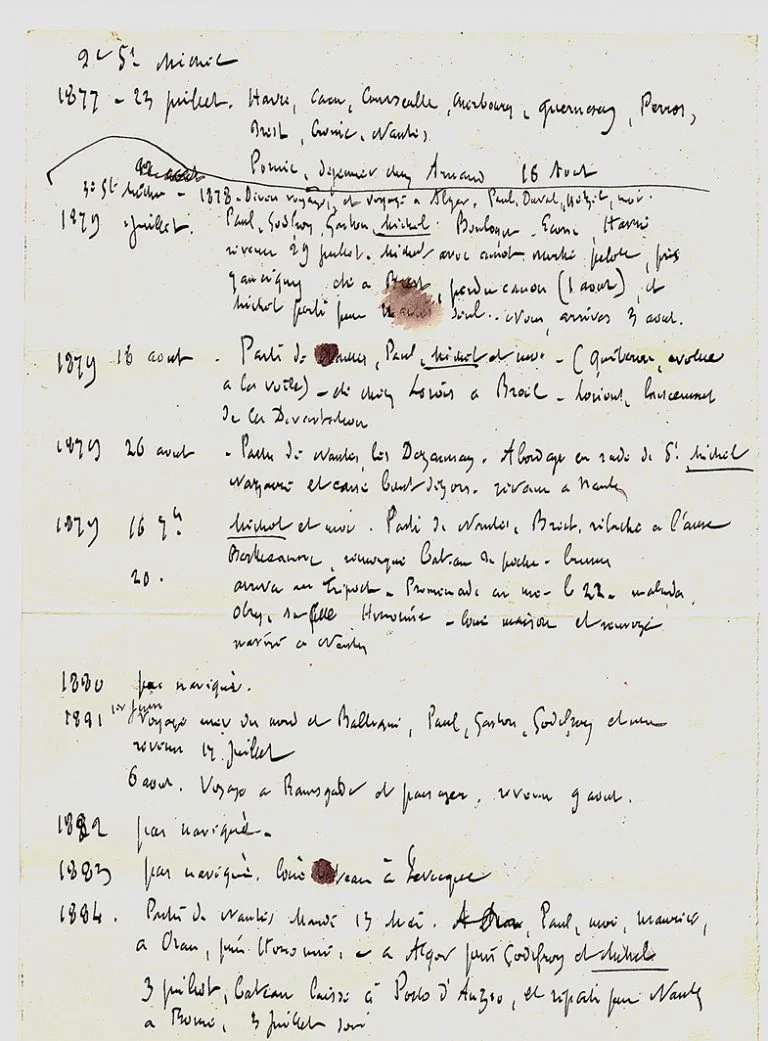 2e St Michel
1877 - 23 juillet. Havre, Caen, Courseulle, Cherbourg, Guernesey, Perros,
Brest, Croisic, Nantes.
Pornic, dejeuner chez Armand 18 Aout
3e St Michel - 1878 - Divers voyages, et voyage a Alger. Paul, Duval, Hetzel, moi.
1879 juillet. Paul, Godfroy, Gaston, Michel. Boulogne - Ecosse, Havre
revenu 29 juillet. Michel avec canot pris
a Brest, perdu canon (1 aout), et
Michel parti pour Nantes seul. Nous, arrivés 3 aout.
1879 18 aout. Parti de Nantes, Paul, Michel et moi - (Quiberon, evolué
a la voile) - été chez Louis a Breil - Lorient, lancement
de la Devastation
1879 26 aout - Partis de Nantes, les Dezaunay. Abordage en rade de St Michel
Nazaire et cassé beaut dehors. revenu a Nantes
1879 16 7b Michel et moi. Parti de Nantes, Brest, relache a l'anse
remorqué bateau de peche - brume
20. arrivés au Tréport - Promenade en mer le 22 - malade,
sa fille Honorine - loué maison et renvoyé
navire a Nantes
1880 pas navigué.
1881 1er juin Voyage mer du nord et Baltique, Paul, Gaston, Godefroy et moi
revenu 17 juillet
6 aout. Voyage a Ramsgate et passager, revenu 9 aout.
1882 pas navigué.
1883 pas navigué. loué bateau à Levesque
1884. Parti de Nantes Mardi 13 Mai. A Oran, Paul, moi, Maurice,
a Oran, pris Honorine - a Alger pris Godefroy et Michel
3 juillet, bateau laissé à Porto d'Anzio, et reparti pour Nantes
a Rome, 3 juillet soir